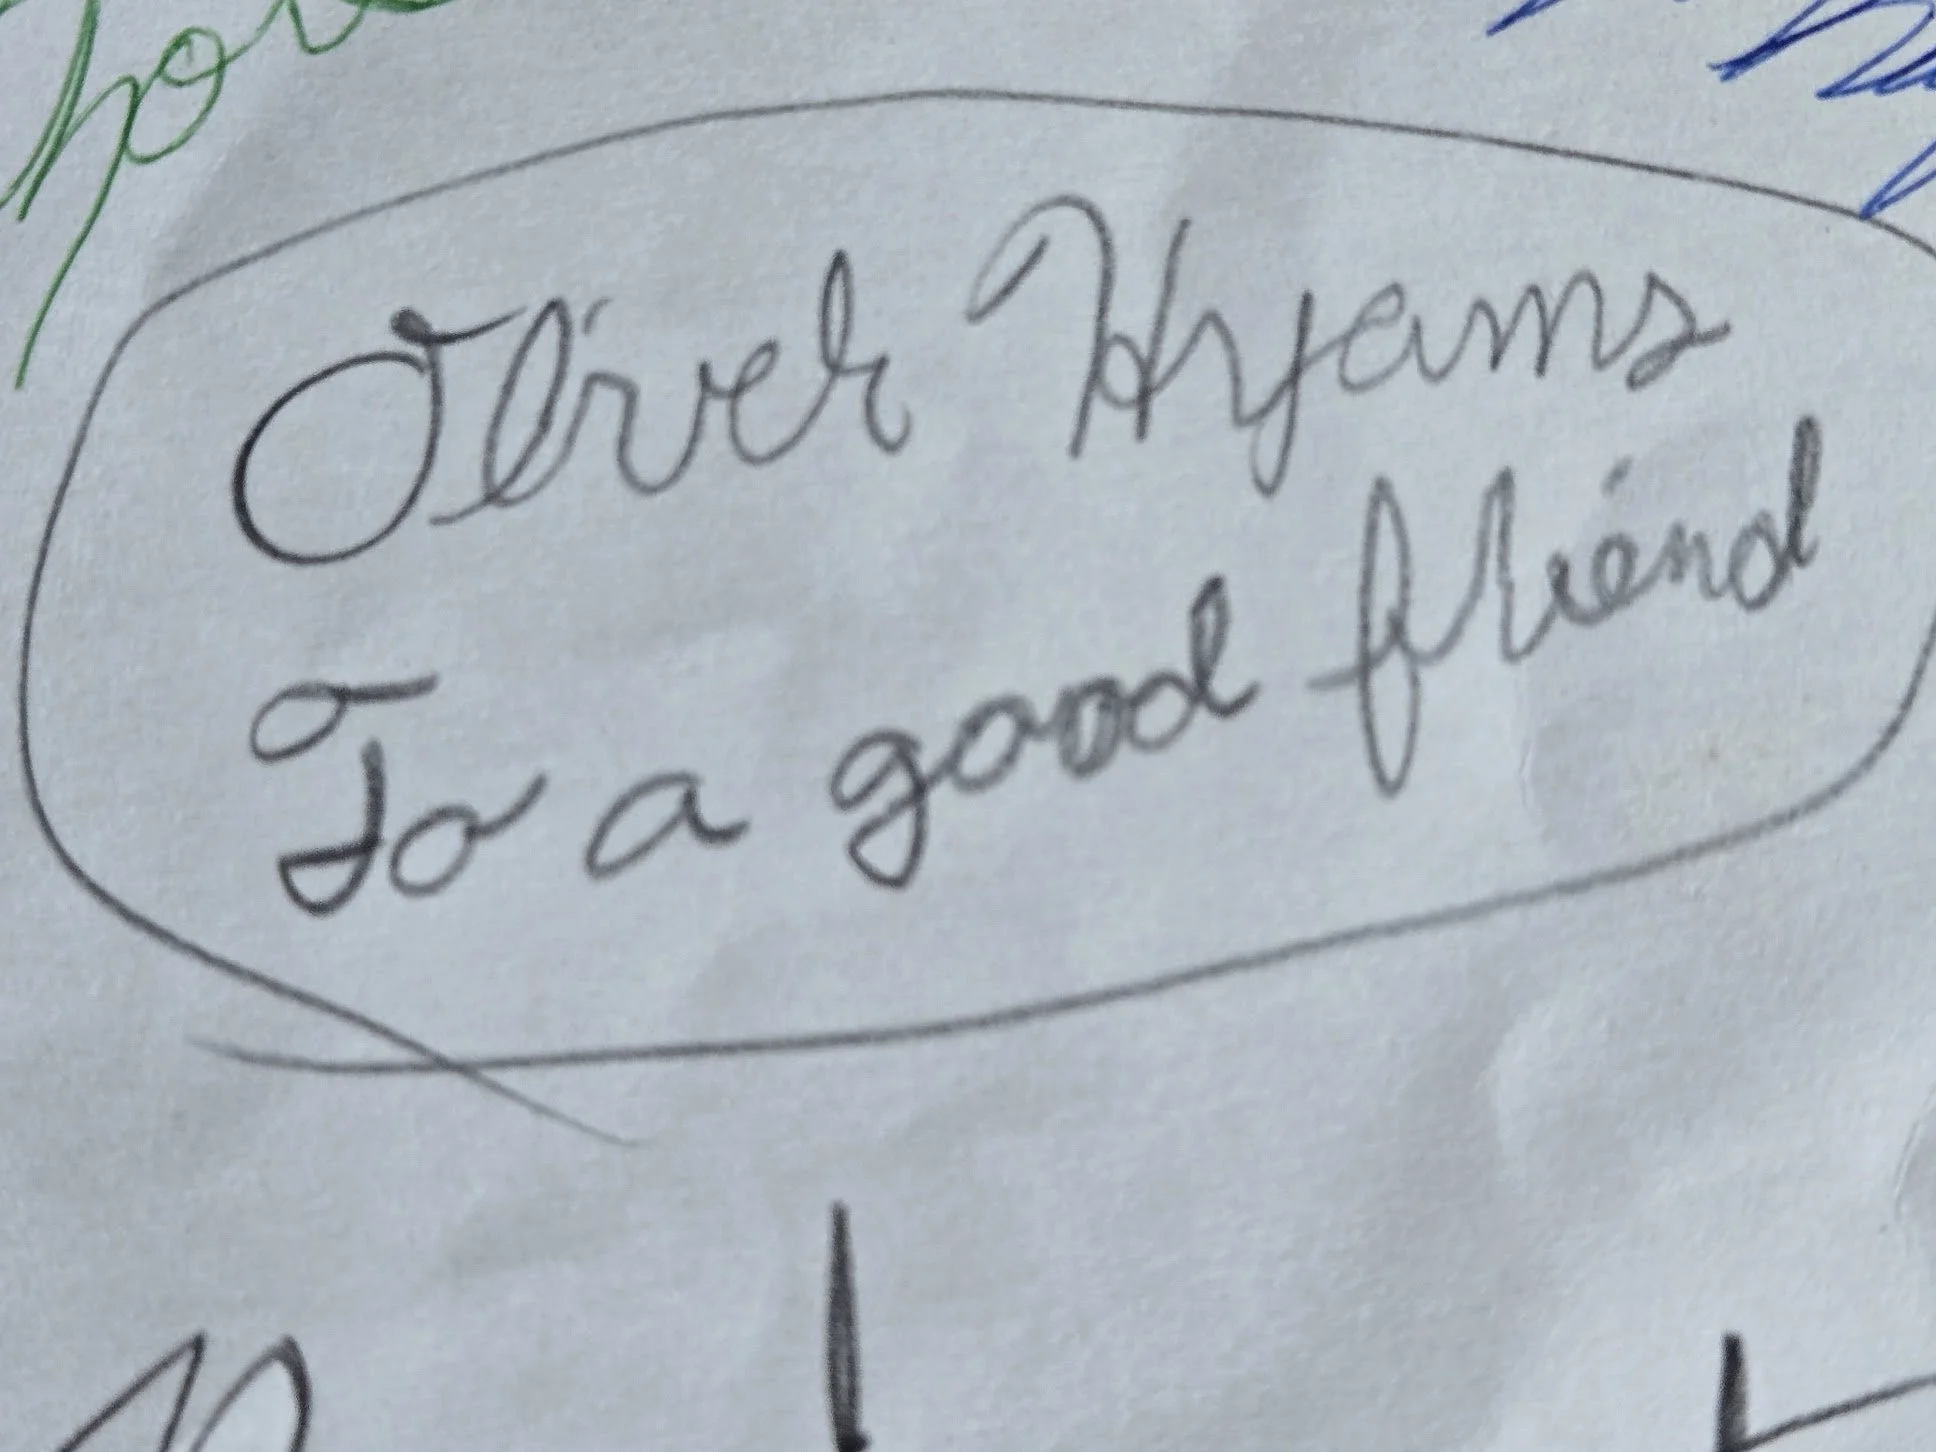 Oliver Hyams
To a good friend